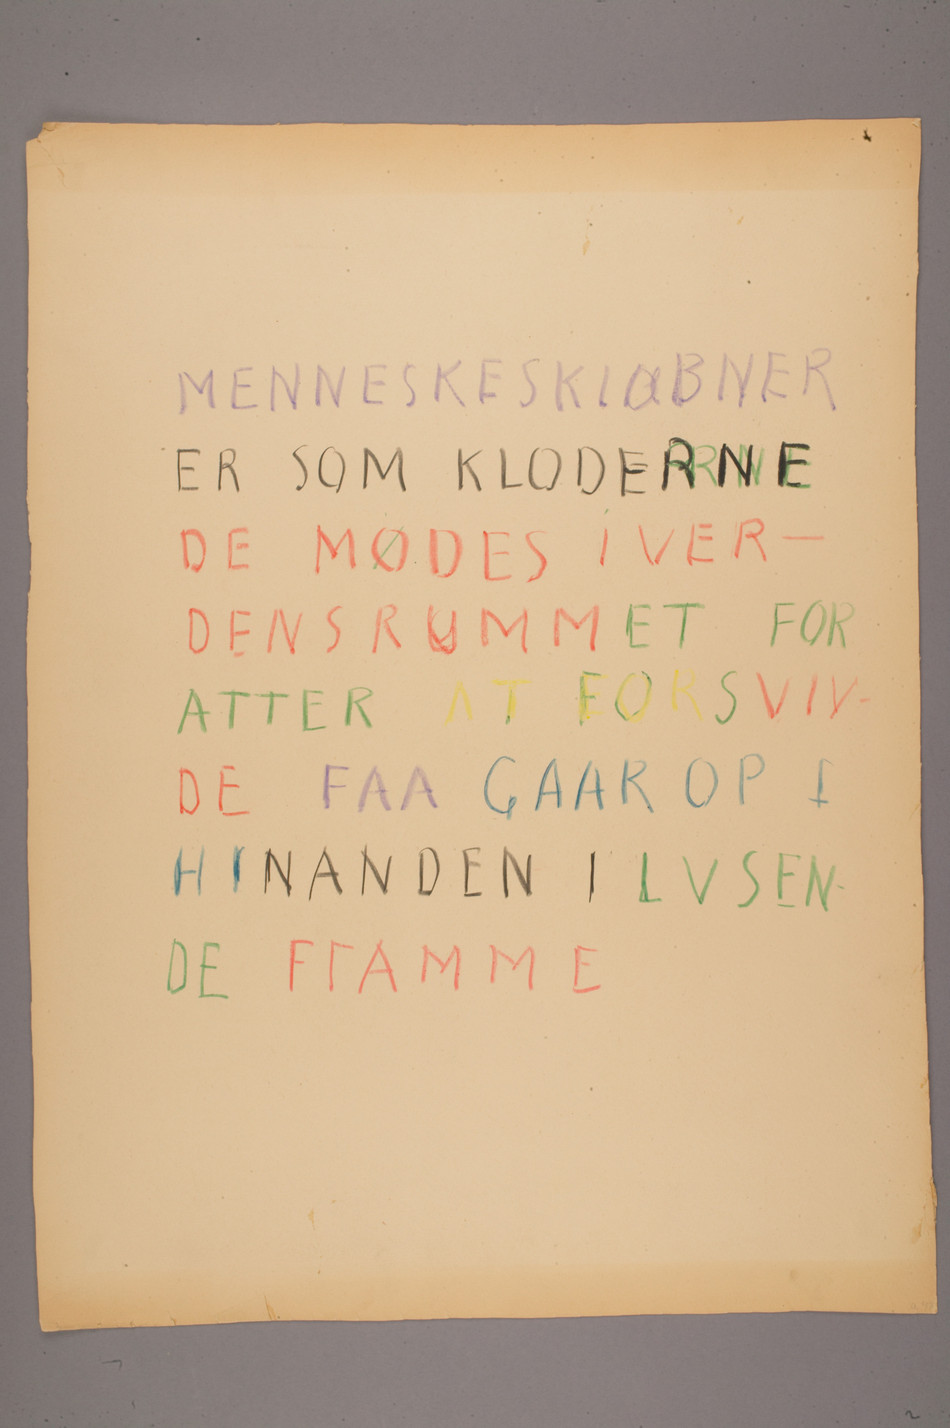 MENNESKESKIØBNER
ER SOM KLODERNE
DE MØDES I VER—
DENSRUMMET FOR
ATTER AT FORSVIV-
DE FAA GAAR OP I
HINANDEN I LVSEN-
DE FLAMME